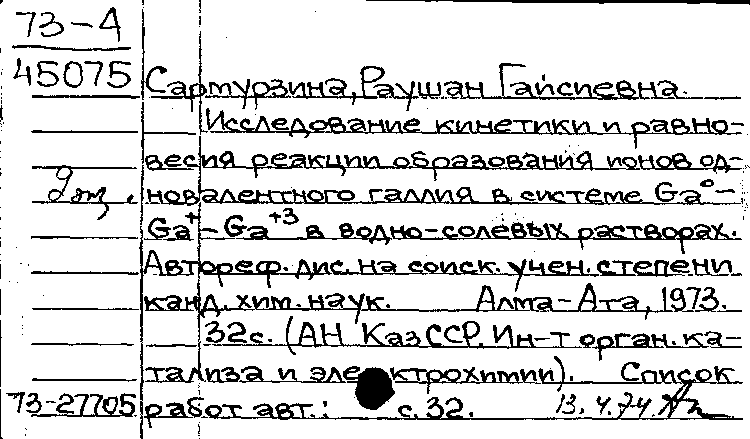 73-4
45075
Сартурзина, Раушан Гайсиевна.
Исследование кинетики и равно-
весия реакции образования ионов од-
2 экз.
новалентного галлия в системе Ga°-
Ga⁺-Ga⁺³ в водно-солевых растворах.
Автореф. дис. на соиск. учен. степени
канд. хим. наук. Алма-Ата, 1973.
32с. (АН КазССР. Ин-т орган. ка-
тализа и электрохимии). Список
73-27705 работ авт.: с. 32. 13.4.74.